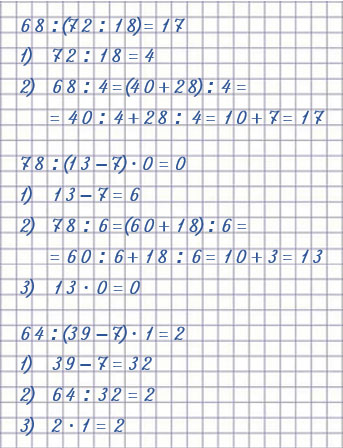 68 : (72 : 18) = 17
1) 72 : 18 = 4
2) 68 : 4 = (40 + 28) : 4 =
= 40 : 4 + 28 : 4 = 10 + 7 = 17
78 : (13 − 7) · 0 = 0
1) 13 − 7 = 6
2) 78 : 6 = (60 + 18) : 6 =
= 60 : 6 + 18 : 6 = 10 + 3 = 13
3) 13 · 0 = 0
64 : (39 − 7) · 1 = 2
1) 39 − 7 = 32
2) 64 : 32 = 2
3) 2 · 1 = 2